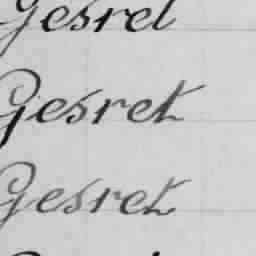 Gesret
Gesret
Gesret